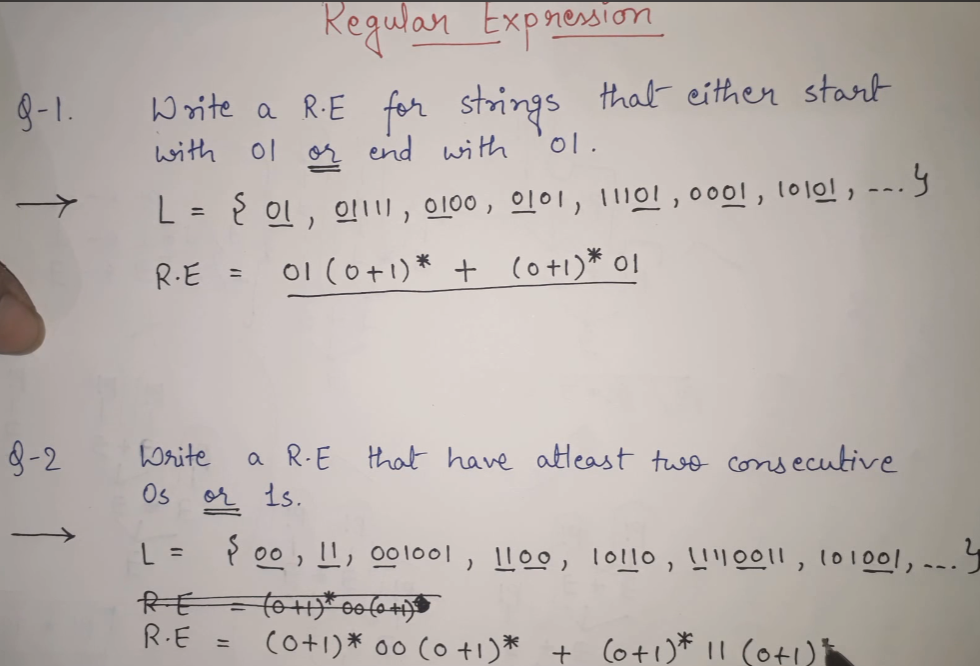 Regular Expression
Q-1. Write a R.E for strings that either start
with 01 or end with 01.
→ L = { 01, 01111, 0100, 0101, 11101, 0001, 10101, ---. }
R.E = 01(0+1)* + (0+1)* 01
Q-2 Write a R.E that have atleast two consecutive
0s or 1s.
→ L = { 00, 11, 001001, 1100, 10110, 11110011, 101001, ... }
R.E = (0+1)* 00 (0+1)*
R.E = (0+1)* 00 (0+1)* + (0+1)* 11 (0+1)*